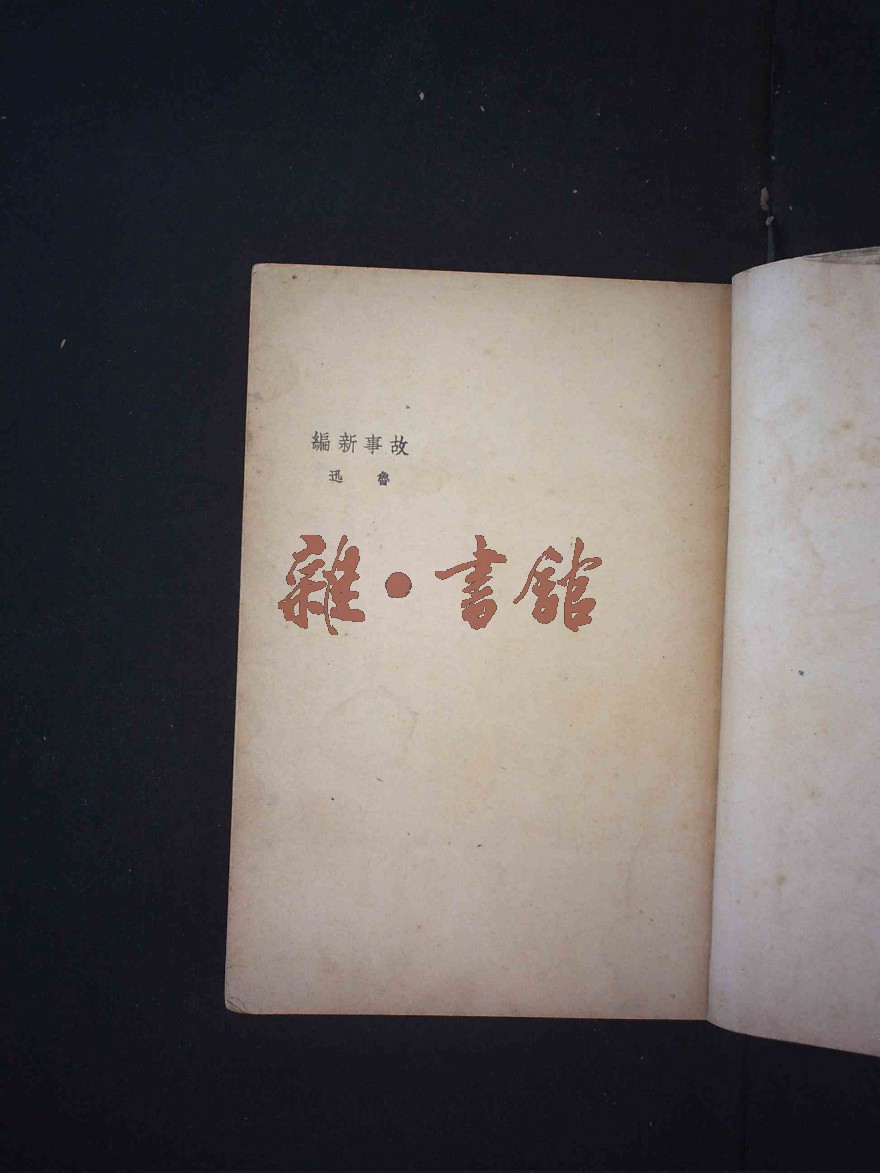 故事新編
魯迅
雜・書館